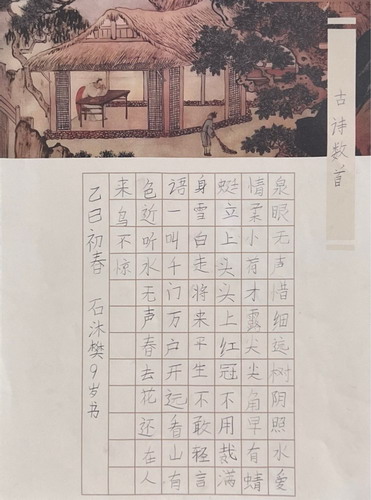 古诗数首
泉眼无声惜细流树阴照水爱
情柔小荷才露尖尖角早有蜻
蜓立上头头上红冠不用裁满
身雪白走将来平生不敢轻言
语一叫千门万户开远看山有
色近听水无声春去花还在人
来鸟不惊
乙巳初春 石沐樊9岁书